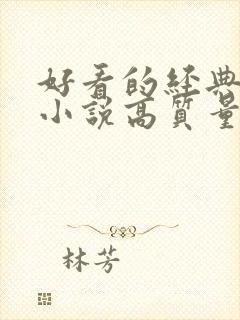 好看的经典
小説高質量
林芳